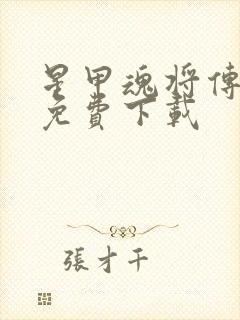 星甲魂将傳
免費下載
張才千